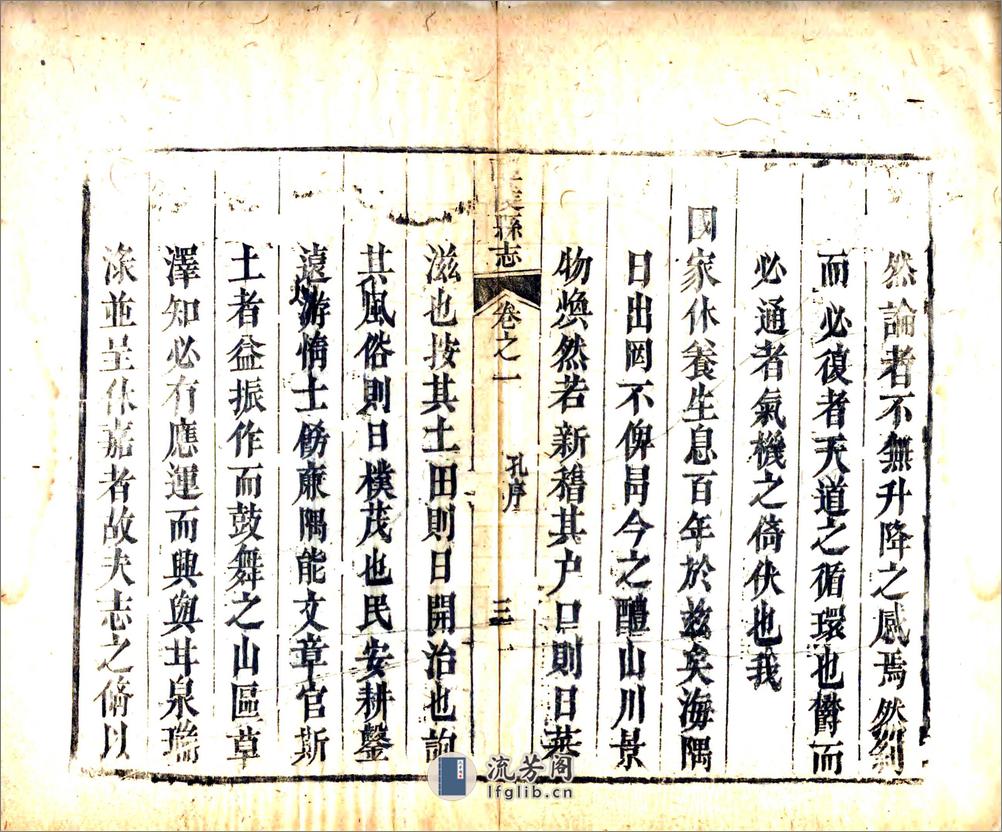 然論者不無升降之感焉然剝
而必復者天道之循環也欝而
必通者氣機之倚伏也我
國家休養生息百年於兹矣海隅
日出罔不俾昌今之醴山川景
物煥然若新稽其户口則日蕃
縣志
卷之一
孔序
三
滋也按其土田則日開治也詢
其風俗則日樸茂也民安耕鑿
遠游惰士飭亷隅能文章官斯
土者益振作而鼓舞之山區草
澤知必有應運而興與耳泉瑞
淥並呈休嘉者故夫志之脩以
流芳阁
lfglib.cn